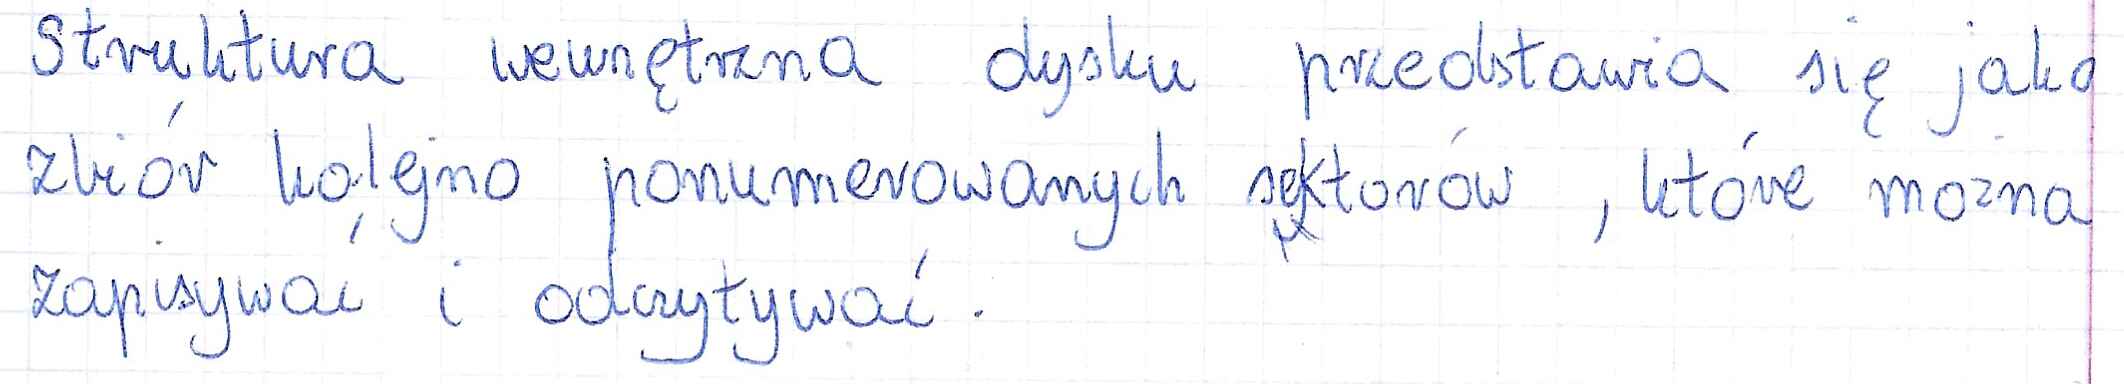 Struktura wewnętrzna dysku przedstawia się jako
zbiór kolejno ponumerowanych sektorów, które można
zapisywać i odczytywać.